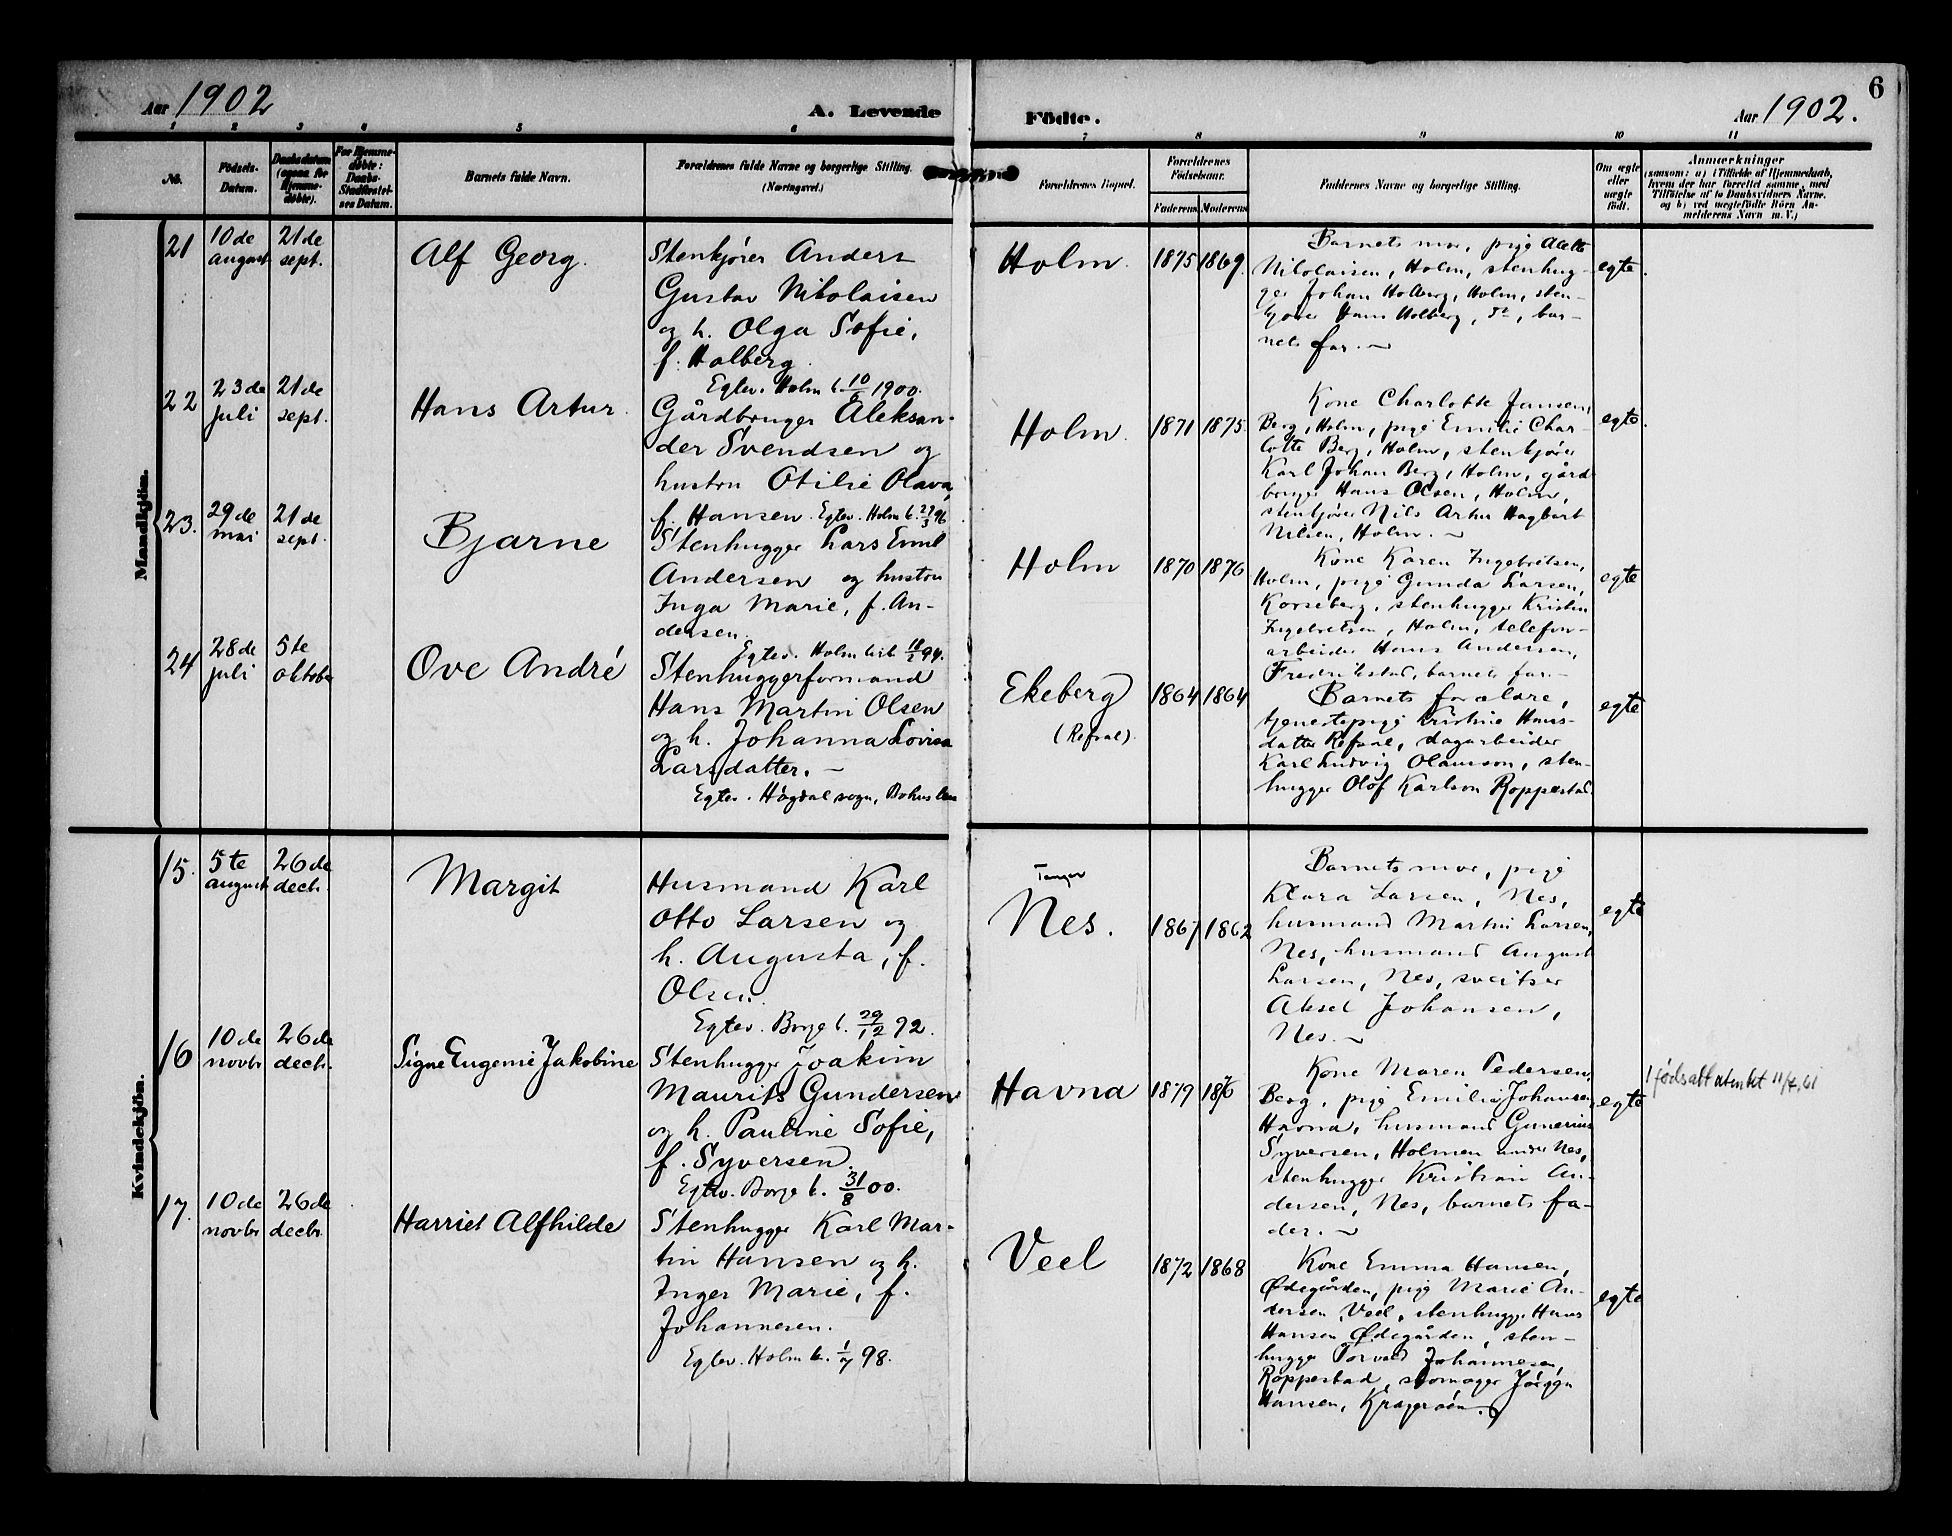 6
Aar 1902
A. Levende
Födte.
Aar 1902.
1 2 3 4 5 6 7 8 9 10 11
No.
Födsels-
Datum.
Daabsdatum
(ogsaa for
Hjemme-
døbte).
For Hjemme-
døbte:
Daabs-
Stadfæstel-
ses Datum.
Barnets fulde Navn.
Forældrenes fulde Navne og borgerlige Stilling.
(Næringsvei.)
Forældrenes Bopæl.
Forældrenes
Födselsaar.
Faderens
Moderens
Faddernes Navne og borgerlige Stilling.
Om ægte
eller
uægte
født.
Anmærkninger
(saasom: a) i Tilfælde af Hjemmedaab,
hvem der har forrettet samme, med
Tilföielse af to Daabsvidners Navne,
og b) ved uægtefödte Börn An-
melderens Navn m. V.)
Mandkjön.
21
10de
august
21de
sept.
Alf Georg.
Stenkjører Anders
Gustav Nikolaisen
og h. Olga Sofie,
f. Holberg.
Egtev. Holm k. 10/6 1900.
Holm.
1875
1869.
Barnets mor, pige Aette
Nikolaisen, Holm, stenhug-
ger Johan Holberg, Holm, sten-
kjører Hans Holberg, do, bar-
nets far. —
egte.
22
23de
juli
21de
sept.
Hans Artur.
Gårdbruger Aleksan-
der Svendsen og
hustru Otilie Olava,
f. Hansen. Egtev. Holm k. 27/3 96
Holm.
1871
1875.
Kone Charlotte Jansen,
Berg, Holm, pige Emilie Char-
lotte Berg, Holm, stenkjører
Karl Johan Berg, Holm, gård-
bruger Hans Olsen, Holm,
stenkjører Nils Artur Hagbart
Nilsen, Holm. —
egte.
23.
29de
mai
21de
sept.
Bjarne
Stenhugger Lars Emil
Andersen og hustru
Inga Marie, f. An-
dersen.
Egtev. Holm kirk 18/2 94.
Holm
1870
1876
Kone Karen Ingebretsen,
Holm, pige Gunda Larsen,
Korseberg, stenhugger Kristin
Ingebretsen, Holm, telefon-
arbeider Hans Andersen,
Frederikstad, barnets far. —
egte
24
28de
juli
5te
oktober
Ove André
Stenhuggerformand
Hans Martin Olsen
og h. Johanna Lovisa
Larsdatter. —
Egtev. Högdal sogn, Bohus län
Ekeberg
(Refsal).
1864
1864
Barnets forældre,
tjenestepige Kristine Hans-
datter Refsal, dagarbeider
Karl Ludvig Olausson, sten-
hugger Olof Karlson Roppestad.
egte
Kvindekjön.
15.
5te
august
26de
decb.
Margit
Husmand Karl
Otto Larsen og
h. Augusta, f.
Olsen.
Egtev. Borge k. 29/12 92.
Tangen
Nes.
1867
1862
Barnets mor, pige
Klara Larsen, Nes,
husmand Martin Larsen,
Nes, husmand August
Larsen, Nes, sveitser
Aksel Johansen,
Nes. —
egte
16
10de
novbr
26de
decb.
Signe Eugenie Jakobine
Stenhugger Joakim
Maurits Gundersen
og h. Pauline Sofie,
f. Syversen.
Egtev. Borge k. 31/8 00.
Havna
1879
Kone Maren Pedersen,
Berg, pige Emilie Johansen,
Havna, husmand Gunerius
Syversen, Holmen under Nes,
stenhugger Kristian An-
dersen, Nes, barnets fa-
der. —
egte
1 fødsattutentet 11/4, 61
17.
10de
novbr
26de
decb.
Harriet Alfhilde
Stenhugger Karl Mar-
tin Hansen og h.
Inger Marie, f.
Johannesen.
Egtev. Holm k. 1/7 98.
Veel
1872
1868
Kone Emma Hansen,
Ødegården, pige Marie An-
dersen Veel, stenhugger Hans
Hansen Ødegården, sten-
hugger Torvald Johannesen,
Roppestad, skomager Jörgen
Hansen, Kragerøen.
egte